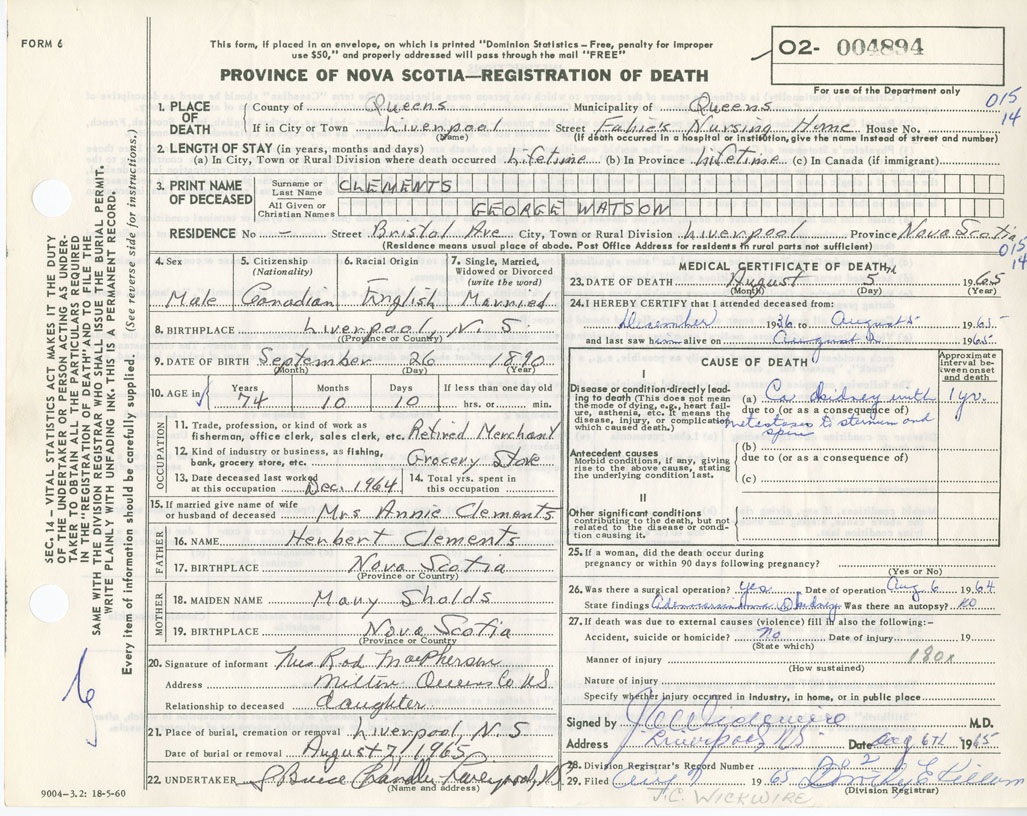 FORM 6
This form, if placed in an envelope, on which is printed "Dominion Statistics – Free, penalty for improper
use $50," and properly addressed will pass through the mail "FREE"
PROVINCE OF NOVA SCOTIA—REGISTRATION OF DEATH
02- 004894
For use of the Department only
015
14
SEC. 14 – VITAL STATISTICS ACT MAKES IT THE DUTY
OF THE UNDERTAKER OR PERSON ACTING AS UNDER-
TAKER TO OBTAIN ALL THE PARTICULARS REQUIRED
IN THE "REGISTRATION OF DEATH" AND TO FILE THE
SAME WITH THE DIVISION REGISTRAR WHO SHALL ISSUE THE BURIAL PERMIT.
WRITE PLAINLY WITH UNFADING INK–THIS IS A PERMANENT RECORD.
Every item of information should be carefully supplied. (See reverse side for instructions.)
6
1. PLACE OF DEATH
County of Queens Municipality of Queens
If in City or Town Liverpool Street Nursing Home House No.
(Name) (If death occurred in a hospital or institution, give the name instead of street and number)
2. LENGTH OF STAY (in years, months and days)
(a) In City, Town or Rural Division where death occurred Lifetime (b) In Province Lifetime (c) In Canada (if immigrant)
3. PRINT NAME OF DECEASED
Surname or Last Name CLEMENTS
All Given or Christian Names GEORGE WATSON
RESIDENCE No – Street Bristol Ave City, Town or Rural Division Liverpool Province Nova Scotia
(Residence means usual place of abode. Post Office Address for residents in rural parts not sufficient)
015
14
4. Sex Male
5. Citizenship (Nationality) Canadian
6. Racial Origin English
7. Single, Married, Widowed or Divorced (write the word) Married
8. BIRTHPLACE Liverpool, N. S.
(Province or Country)
9. DATE OF BIRTH September 26 1890
(Month) (Day) (Year)
10. AGE in Years 74 Months 10 Days 10 If less than one day old hrs. or min.
OCCUPATION
11. Trade, profession, or kind of work as
fisherman, office clerk, sales clerk, etc. Retired Merchant
12. Kind of industry or business, as fishing,
bank, grocery store, etc. Grocery Store
13. Date deceased last worked at this occupation Dec. 1964
14. Total yrs. spent in this occupation
15. If married give name of wife
or husband of deceased Mrs Annie Clements
FATHER
16. NAME Herbert Clements
17. BIRTHPLACE Nova Scotia
(Province or Country)
MOTHER
18. MAIDEN NAME Mary Sholds
19. BIRTHPLACE Nova Scotia
(Province or Country)
20. Signature of informant Mrs Rod MacPherson
Address Milton Queens Co NS
Relationship to deceased daughter
21. Place of burial, cremation or removal Liverpool, N. S
Date of burial or removal August 7, 1965
22. UNDERTAKER Liverpool, NS
(Name and address)
9004–3.2: 18-5-60
MEDICAL CERTIFICATE OF DEATH
23. DATE OF DEATH August 5 1965
(Month) (Day) (Year)
24. I HEREBY CERTIFY that I attended deceased from:
December 1936 to August 5 1965
and last saw him alive on August 1965
CAUSE OF DEATH
Approximate interval between onset and death
I
Disease or condition directly lead-
ing to death (This does not mean
the mode of dying, e.g., heart fail-
ure, asthenia, etc. It means the
disease, injury, or complication
which caused death.)
(a) Ca. kidney with 1 yr.
due to (or as a consequence of)
metastases to sternum and
spine
Antecedent causes
Morbid conditions, if any, giving
rise to the above cause, stating
the underlying condition last.
(b)
due to (or as a consequence of)
(c)
II
Other significant conditions
contributing to the death, but not
related to the disease or condi-
tion causing it.
25. If a woman, did the death occur during
pregnancy or within 90 days following pregnancy?
(Yes or No)
26. Was there a surgical operation? yes Date of operation Aug 6 1964
State findings kidney Was there an autopsy? no
27. If death was due to external causes (violence) fill in also the following:–
Accident, suicide or homicide? no Date of injury 19
(State which)
Manner of injury 180x
(How sustained)
Nature of injury
Specify whether injury occurred in industry, in home, or in public place
Signed by J C Wickwire M.D.
Address Liverpool NS Date Aug 6th 1965
28. Division Registrar's Record Number 2
29. Filed Aug 7 1965
(Division Registrar)
J.C. WICKWIRE